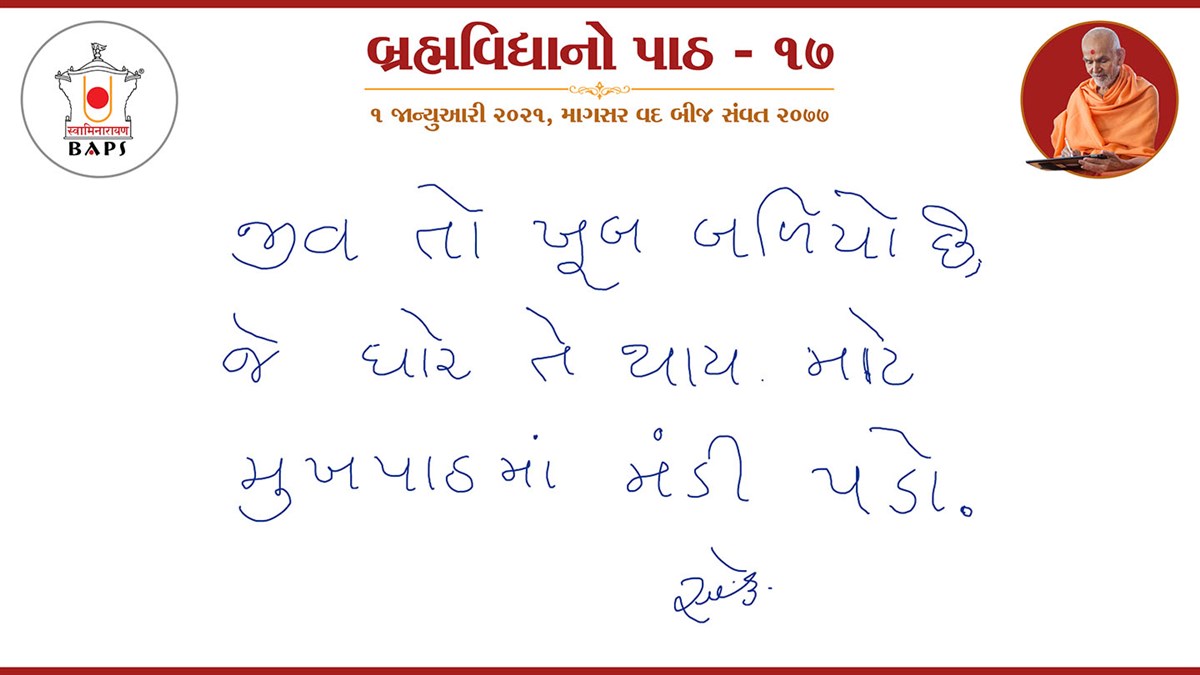 બ્રહ્મવિદ્યાનો પાઠ - ૧૭
૧ જાન્યુઆરી ૨૦૨૧, માગસર વદ બીજ સંવત ૨૦૭૭
स्वामिनारायण
BAPS
જીવ તો ખૂબ બળિયો છે,
જે ધારે તે થાય. માટે
મુખપાઠમાં મંડી પડો.